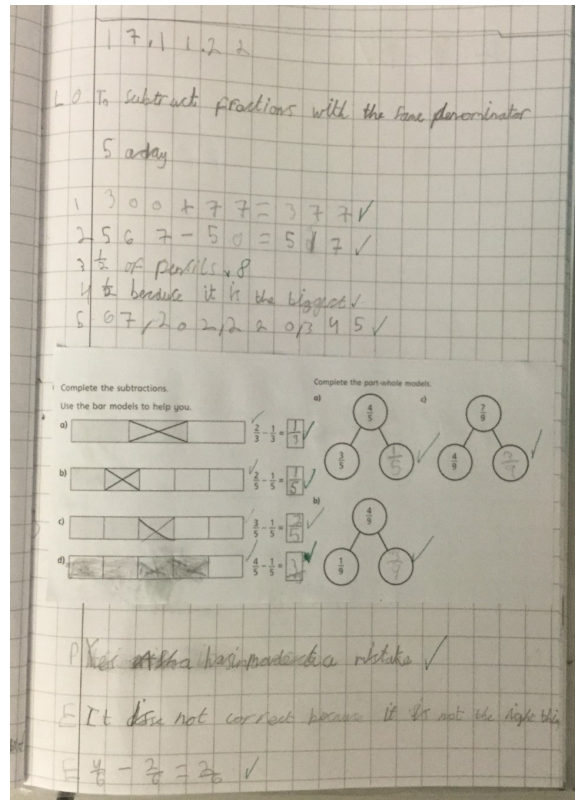 17.11.22
LO To subtract fractions with the same denominator
5 aday
1 300 + 77 = 377 ✓
2 567 - 50 = 517 ✓
3 1/2 of pencils 8
4 1/2 because it is the biggest ✓
5 67, 202, 220, 345 ✓
Complete the subtractions.
Use the bar models to help you.
a) 2/3 - 1/3 = 1/3 ✓
b) 2/5 - 1/5 = 1/5 ✓
c) 3/5 - 1/5 = 2/5 ✓
d) 4/5 - 1/5 =
Complete the part-whole models.
a) 4/5 3/5 1/5 ✓
c) 7/9 4/9 3/9 ✓
b) 4/9 1/9 3/9 ✓
P a mistake ✓
E It not correct because it is not the right
E 4/6 - 2/6 = 2/6 ✓